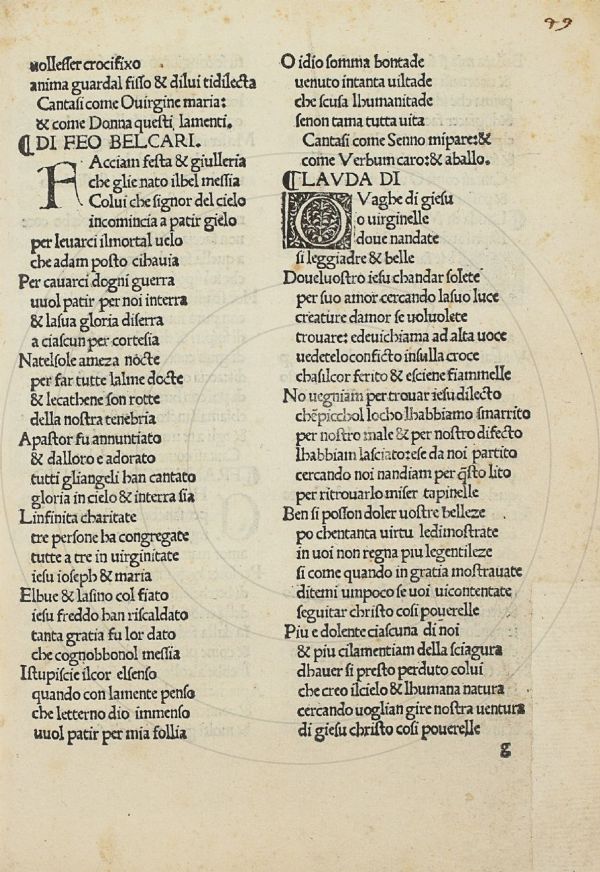 49
uollesser crocifixo
anima guardal fisso & dilui tidilecta
Cantasi come Ouirgine maria:
& come Donna questi lamenti.
⁋DI FEO BELCARI.
FAcciam festa & giulleria
che glie nato ilbel messia
Colui che signor del cielo
incomincia a patir gielo
per leuarci ilmortal uelo
che adam posto cihauia
Per cauarci dogni guerra
uuol patir per noi interra
& lasua gloria diserra
a ciascun per cortesia
Natelsole ameza nocte
per far tutte lalme docte
& lecathene son rotte
della nostra tenebria
Apastor fu annuntiato
& dalloro e adorato
tutti gliangeli han cantato
gloria in cielo & interra sia
Linfinita charitate
tre persone ha congregate
tutte a tre in uirginitate
iesu ioseph & maria
Elbue & lasino col fiato
iesu freddo han riscaldato
tanta gratia fu lor dato
che cognobbonol messia
Istupiscie ilcor elsenso
quando con lamente penso
che letterno dio immenso
uuol patir per mia follia
O idio somma bontade
uenuto intanta uiltade
che scusa lhumanitade
senon tama tutta uita
Cantasi come Senno mipare:&
come Verbum caro:& aballo.
⁋LAVDA DI
OVaghe di giesu
o uirginelle
doue nandate
si leggiadre & belle
Doueluostro iesu chandar solete
per suo amor cercando lasuo luce
creature damor se uoluolete
trouare: edeuichiama ad alta uoce
uedetelo conficto insulla croce
chasilcor ferito & esciene fiammelle
No uegniam per trouar iesu dilecto
chēpicchol locho lhabbiamo smarrito
per nostro male & per nostro difecto
lhabbiam lasciato:ese da noi partito
cercando noi nandiam per q̄sto lito
per ritrouarlo miser tapinelle
Ben si posson doler uostre belleze
po chentanta uirtu ledimostrate
in uoi non regna piu legentileze
si come quando in gratia mostrauate
ditemi umpoco se uoi uicontentate
seguitar christo cosi pouerelle
Piu e dolente ciascuna di noi
& piu cilamentiam della sciagura
dhauer si presto perduto colui
che creo ilcielo & lhumana natura
cercando uoglian gire nostra uentura
di giesu christo cosi pouerelle
g